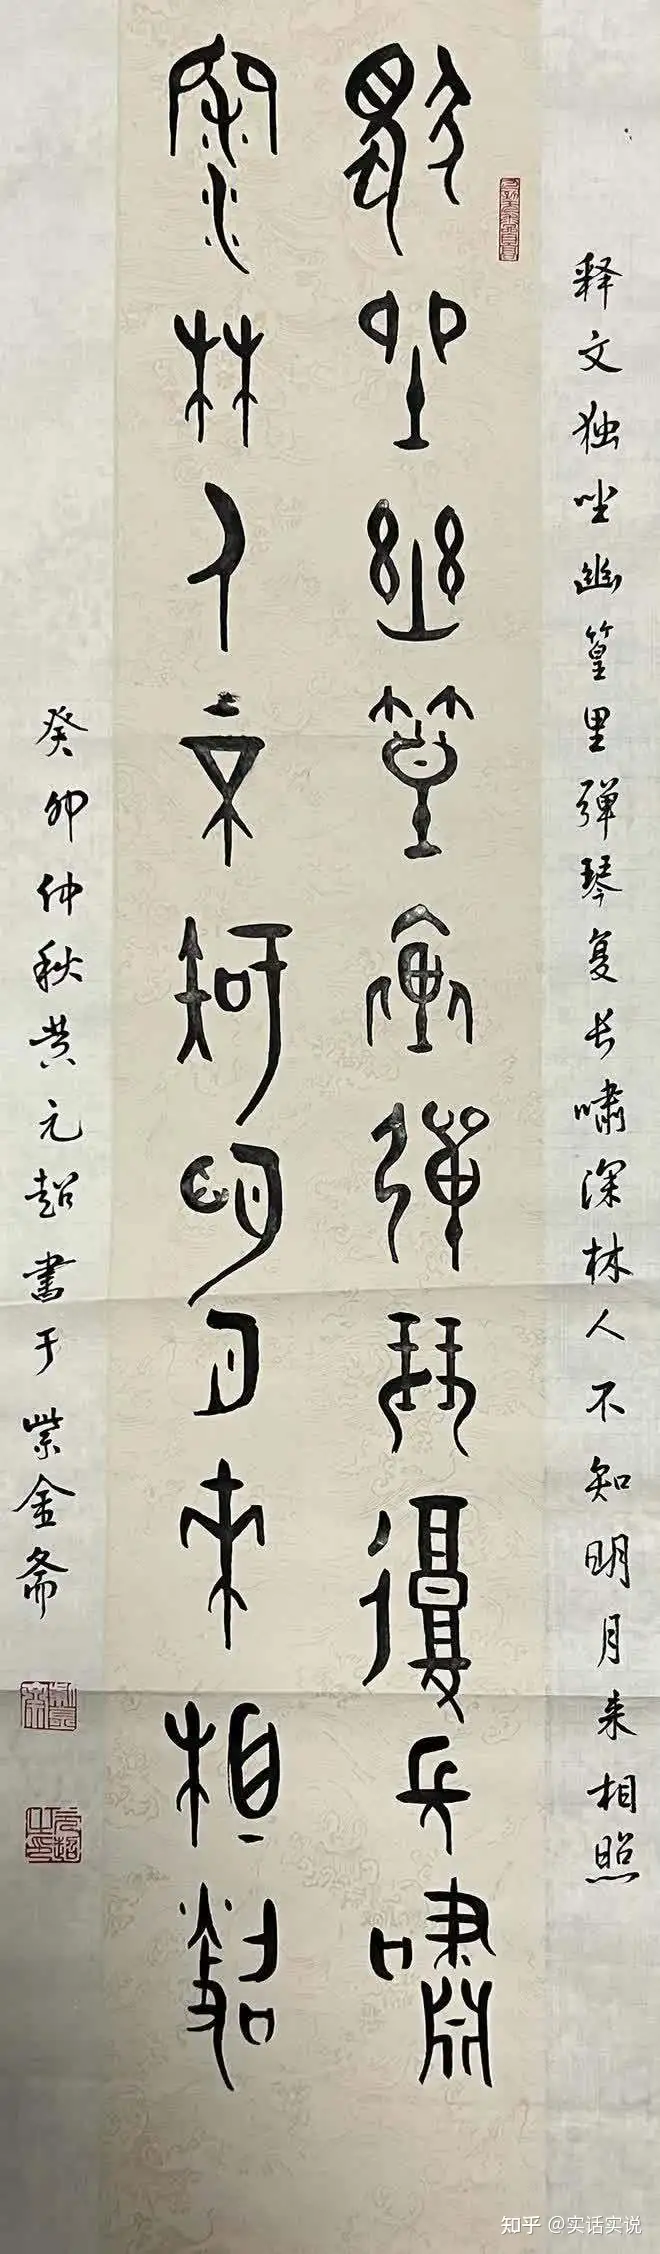 释文独坐幽篁里弹琴复长啸深林人不知明月来相照
独坐幽篁里弹琴复长啸
深林人不知明月来相照
癸卯仲秋黄元超書于紫金斋
知乎 @实话实说